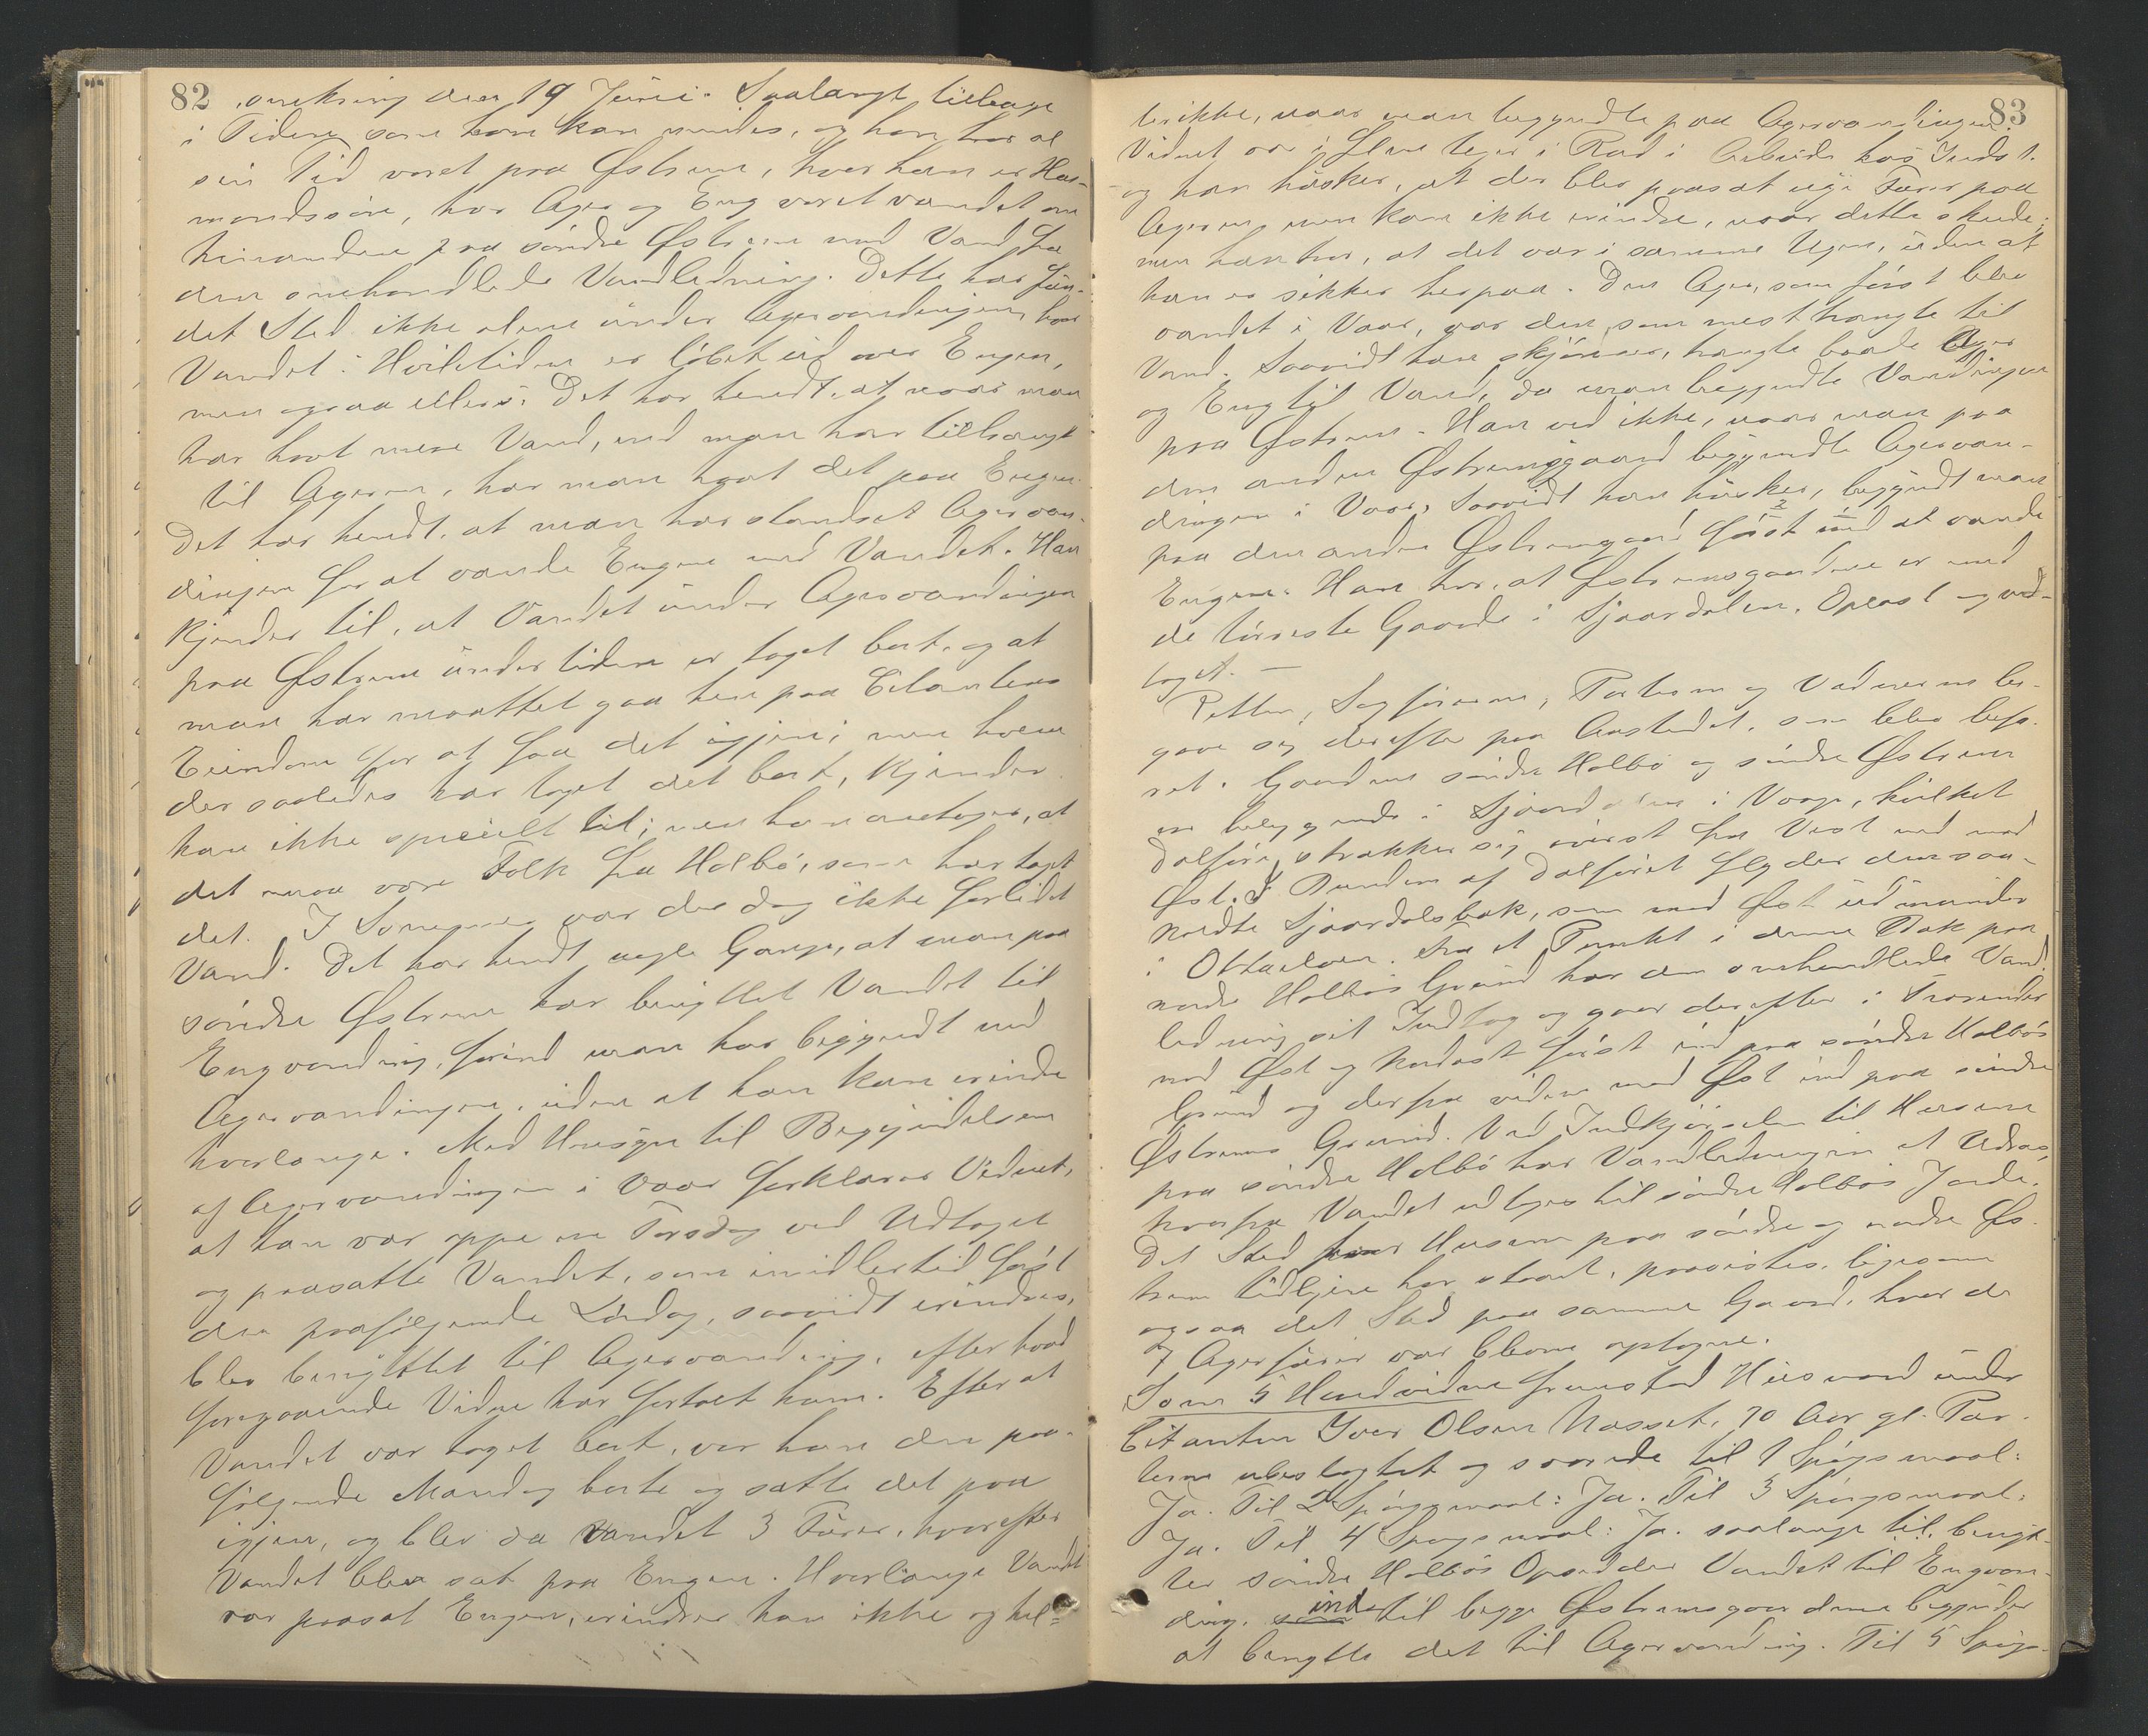 82
omkring den 19 Juni. Saalangt tilbage
i Tiden, som han kan mindes, og han har al
sin Tid været paa Østrem, hvor han er Hus-
mandssøn, har Ager og Eng været vandet om
hinanden paa søndre Østrem med Vand fra
den omhandlede Vandledning. Dette har fun-
det Sted ikke alene under Agervandingen, hvor
Vandet i Hviletiden er løbet ud over Engen,
men ogsaa ellers. Det har hendt, at naar man
har havt mere Vand, end man har tiltrængt
til Ageren, har man havt det paa Engen.
Det har hendt, at man har standset Agervan-
dingen for at vande Engene med Vandet. Han
kjender til, at Vandet under Agervandingen
paa Østrem undertiden er taget bort, og at
man har maattet gaa hen paa Citantens
Eiendom for at faa det igjen; men hvem
der saaledes har taget det bort, kjender
han ikke specielt til; men han antager, at
det maa være Folk fra Holbø, som har taget
det. I Sommer var der dog ikke forlidet
Vand. Det har hendt nogle Gange, at man paa
søndre Østrem har benyttet Vandet til
Engvanding, førend man har begyndt med
Agervandingen, uden at han kan erindre
hvorlænge. Med Hensyn til Begyndelsen
af Agervandingen i Vaar forklarer Vidnet,
at han var oppe en Torsdag ved Udtaget
og paasatte Vandet, som imidlertid først
den paafølgende Lørdag, saavidt erindres,
blev benyttet til Agervanding, efter hvad
foregaaende Vidne har fortalt ham. Efter at
Vandet var taget bort, var han den paa-
følgende Mandag borte og satte det paa
igjen, og blev da vandet 3 Furer, hvorefter
Vandet blev sat paa Engen. Hvorlænge Vandet
var paasat Engen, erindrer han ikke og hel-
83
ler ikke, naar man begyndte paa Agervandingen.
Vidnet var i flere Uger i Rad i Arbeide hos Indst.
og han husker, at der blev paasat nye Furer paa
Ageren, men kan ikke erindre, naar dette skede;
men han tror, at det var i samme Ugen, uden at
han er sikker herpaa. Den Ager, som først blev
vandet i Vaar, var den, som mest trængte til
Vand. Saavidt han skjønner, trængte baade Ager
og Eng til Vand, da man begyndte Vandingen
paa Østrem. Han ved ikke, naar man paa
den anden Østremsgaard begyndte Agervan-
dingen i Vaar. Saavidt han husker, begyndt man
paa den anden Østremgaard først med at vande
Engene. Han tror, at Østremsgaardene er med
de tørreste Gaarde i Sjaardalen. Oplæst og ved-
taget. —
Retten, Sagførerne, Parterne og Vidnerne be-
gave sig derefter paa Aastedet, som blev befa-
ret. Gaardene søndre Holbø og søndre Østrem
ere beliggende i Sjaardalen i Vaage, hvilket
Dalføre strækker sig øverst fra Vest ned mod
Øst. I Bunden af Dalføret flyder den saa-
kaldte Sjaardalsbæk, som mod Øst udmunder
i Ottaelven. Fra et Punkt i denne Bæk paa
nordre Holbøs Grund har den omhandlede Vand-
ledning sit Indtag og gaar derefter i
mod Øst og Nordøst først ind paa søndre Holbøs
Grund og derfra videre mod Øst ind paa søndre
Østrems Grund. Ved Indkjørselen til Husene
paa søndre Holbø har Vandledningen et Udtag,
hvorfra Vandet udtages til søndre Holbøs Jorde.
Det Sted hvor Husene paa søndre og nordre Øs-
trem tidligere har staaet, paavistes, ligesom
ogsaa det Sted paa samme Gaard, hvor de
7 Agerfurer var blevne optagne.
Som 5 Hovedvidne fremstod Husmand under
Citanten Iver Olsen Nasset, 70 Aar gl. Par-
terne ubeslægtet og svarede til 1 Spørgsmaal:
Ja. Til 2 Spørgsmaal: Ja. Til 3 Spørgsmaal:
Ja. Til 4 Spørgsmaal: Ja. saalænge til. benyt-
ter søndre Holbøs Opsidder Vandet til Engvan-
ding, ind til begge Østremsgaardene begynder
at benytte det til Agervanding. Til 5 Spørgs-